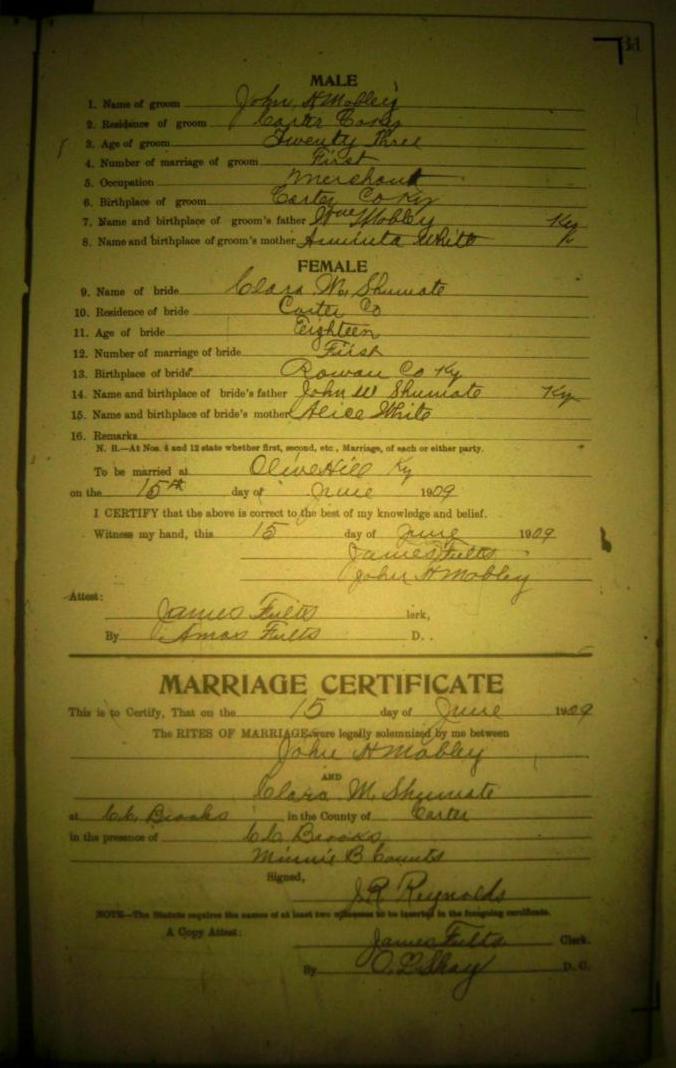 31
MALE
1. Name of groom John H Mobley
2. Residence of groom Carter County
3. Age of groom Twenty Three
4. Number of marriage of groom First
5. Occupation Merchant
6. Birthplace of groom Carter Co Ky
7. Name and birthplace of groom's father Wm Mobley Ky
8. Name and birthplace of groom's mother Aminta White
FEMALE
9. Name of bride Clara M. Shumate
10. Residence of bride Carter Co
11. Age of bride Eighteen
12. Number of marriage of bride First
13. Birthplace of bride Rowan Co Ky
14. Name and birthplace of bride's father John W Shumate Ky
15. Name and birthplace of bride's mother Alice White
16. Remarks
N. B.—At Nos. 4 and 12 state whether first, second, etc., Marriage, of each or either party.
To be married at Olive Hill Ky
on the 15th day of June 1909
I CERTIFY that the above is correct to the best of my knowledge and belief.
Witness my hand, this 15 day of June 1909
James Fults
John H Mobley
Attest:
James Fults lerk,
By Amos Fults D. .
MARRIAGE CERTIFICATE
This is to Certify, That on the 15 day of June 1909
The RITES OF MARRIAGE were legally solemnized by me between
John H Mobley
AND
Clara M. Shumate
at C.C. Brooks in the County of Carter
in the presence of C.C. Brooks
Minnie B Counts
Signed,
J.R. Reynolds
NOTE—The Statute requires the names of at least two witnesses to be inserted in the foregoing certificate.
A Copy Attest:
James Fults Clerk.
By O. L. Shay D. C.